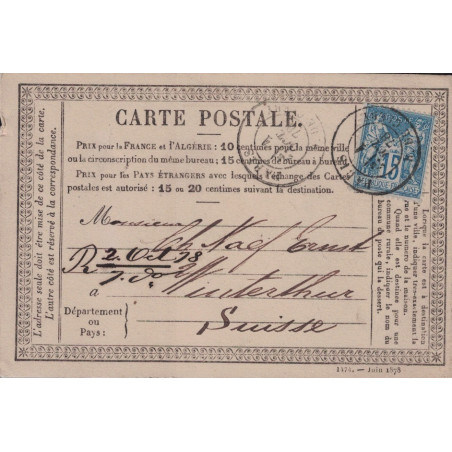 CARTE POSTALE.
PRIX pour la FRANCE et l'ALGÉRIE: 10 centimes pour la même ville
ou la circonscription du même bureau; 15 centimes de bureau à bureau.
PRIX pour les PAYS ÉTRANGERS avec lesquels l'échange des Cartes
postales est autorisé: 15 ou 20 centimes suivant la destination.
Monsieur
Ch Naef Ernst
R 2. Oct 78
à Winterthur
Département
ou
Pays:
Suisse
L'adresse seule doit être mise de ce côté de la carte.
L'autre côté est réservé à la correspondance.
15
Lorsque la carte est à destination
d'une ville, indiquer très-exactement la
rue et le numéro de la maison.
Quand elle est destinée pour une
commune rurale, indiquer le nom du
bureau de poste qui la dessert.
1474. — Juin 1878